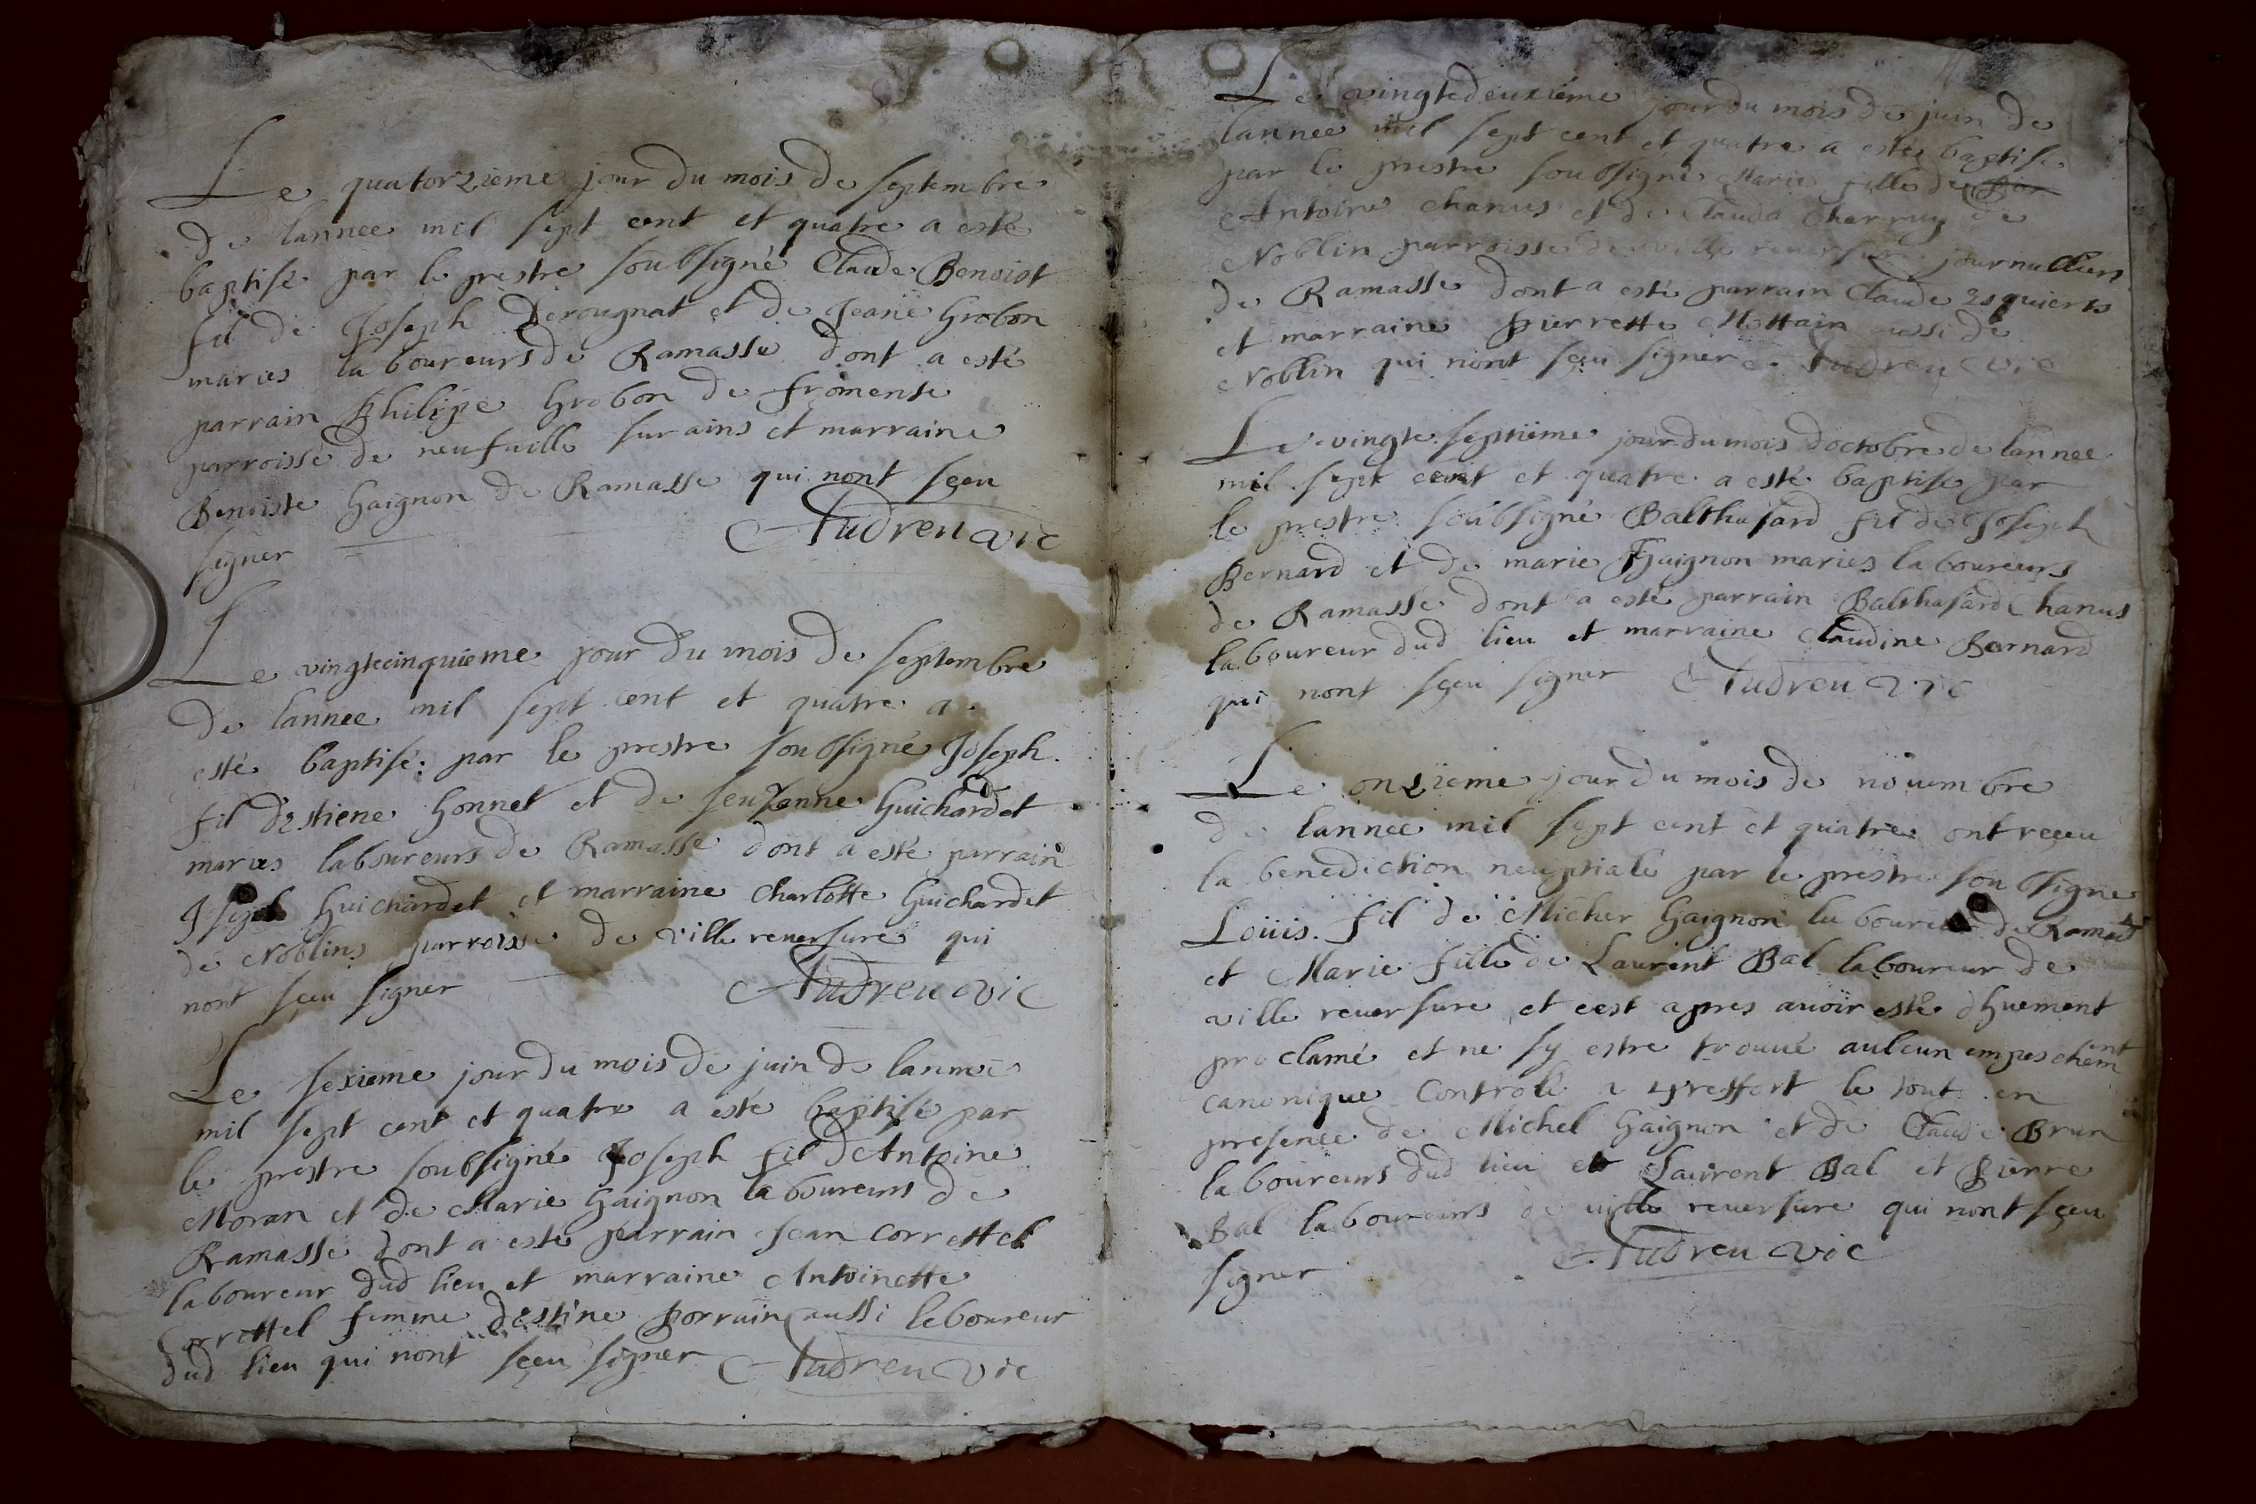 Le quatorzieme jour du mois de septembre
de lannee mil sept cent et quatre a esté
baptisé par le prestre soubsigné Claude Benoiot
fil de Joseph Derougnat et de Jeane Grobon
maries laboureurs de Ramasse dont a esté
parrain Philipe Grobon de fromente
parroisse de neufuille sur ains et marraine
Benoiste Gaignon de Ramasse qui nont sçeu
signer Audreu vic
Le vingtecinquieme jour du mois de septembre
de lannee mil sept cent et quatre a
esté baptisé par le prestre soubsigné Joseph
fil destiene Gonnet et de seuzanne Guichardet
maries laboureurs de Ramasse dont a esté parrain
Joseph Guichardet et marraine Charlotte Guichardet
de Noblins parroisse de ville reuersure qui
nont sçeu signer Audreu vic
Le sexieme jour du mois de juin de lannee
mil sept cent et quatre a esté baptisé par
le prestre soubsigné Joseph fil dAntoine
Moran et de Marie Gaignon laboureurs de
Ramasse dont a esté parrain Jean Correttel
laboureur dud lieu et marraine Antoinette
Correttel femme destine Porrain aussi leboureur
dud lieu qui nont sçeu signer Audreu vic
Le vingtedeuxiéme jour du mois de juin de
lannee mil sept cent et quatre a estée baptise
par le prestre soubsigné Marie fille de
Antoine Chanus et de Clauda de
Noblin parroisse de ville reuersure journalliers
de Ramasse dont a esté parrain Claude
et marraine pierrette Mottain aussi de
Noblin qui nont sçeu signer Audreu vic
Le vingte septiéme jour du mois doctobre de lannee
mil sept cent et quatre a esté baptise par
le prestre soubsigné Balthasard fil de Joseph
Bernard et de marie Gaignon maries laboureurs
de Ramasse dont a esté parrain Balthasard Chanus
laboureur dud lieu et marraine Claudine Bernard
qui nont sçeu signer Audreu vic
Le onzieme jour du mois de nouembre
de lannee mil sept cent et quatre ont receu
la benediction neuptiale par le prestre soubsigne
Loüis fil de Micher Gaignon laboureur de Ramasse
et Marie fille de Laurent Bal laboureur de
ville reuersure et cest apres auoir esté dhuement
proclamé et ne sy estre trouué auleun empeschem ent
canonique Controlé a le tout en
presence de Michel Gaignon et de Claude Brun
laboureurs dud lieu et Laurent Bal et Pierre
Bal laboureurs de ville reuersure qui nont sçeu
signer Audreu vic